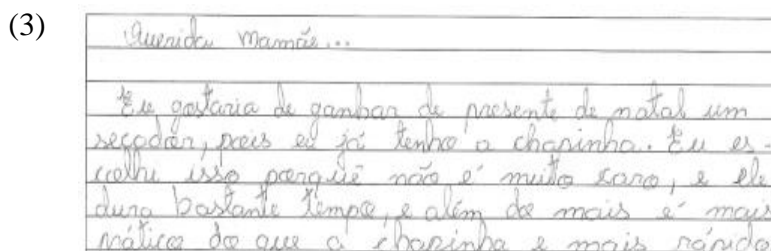 (3)
Querida mamãe...
Eu gostaria de ganhar de presente de natal um
secador, pois eu já tenho a chapinha. Eu es-
colhi isso porquê não é muito caro, e ele
dura bastante tempo, e além do mais é mais
prático do que a chapinha e mais rápido